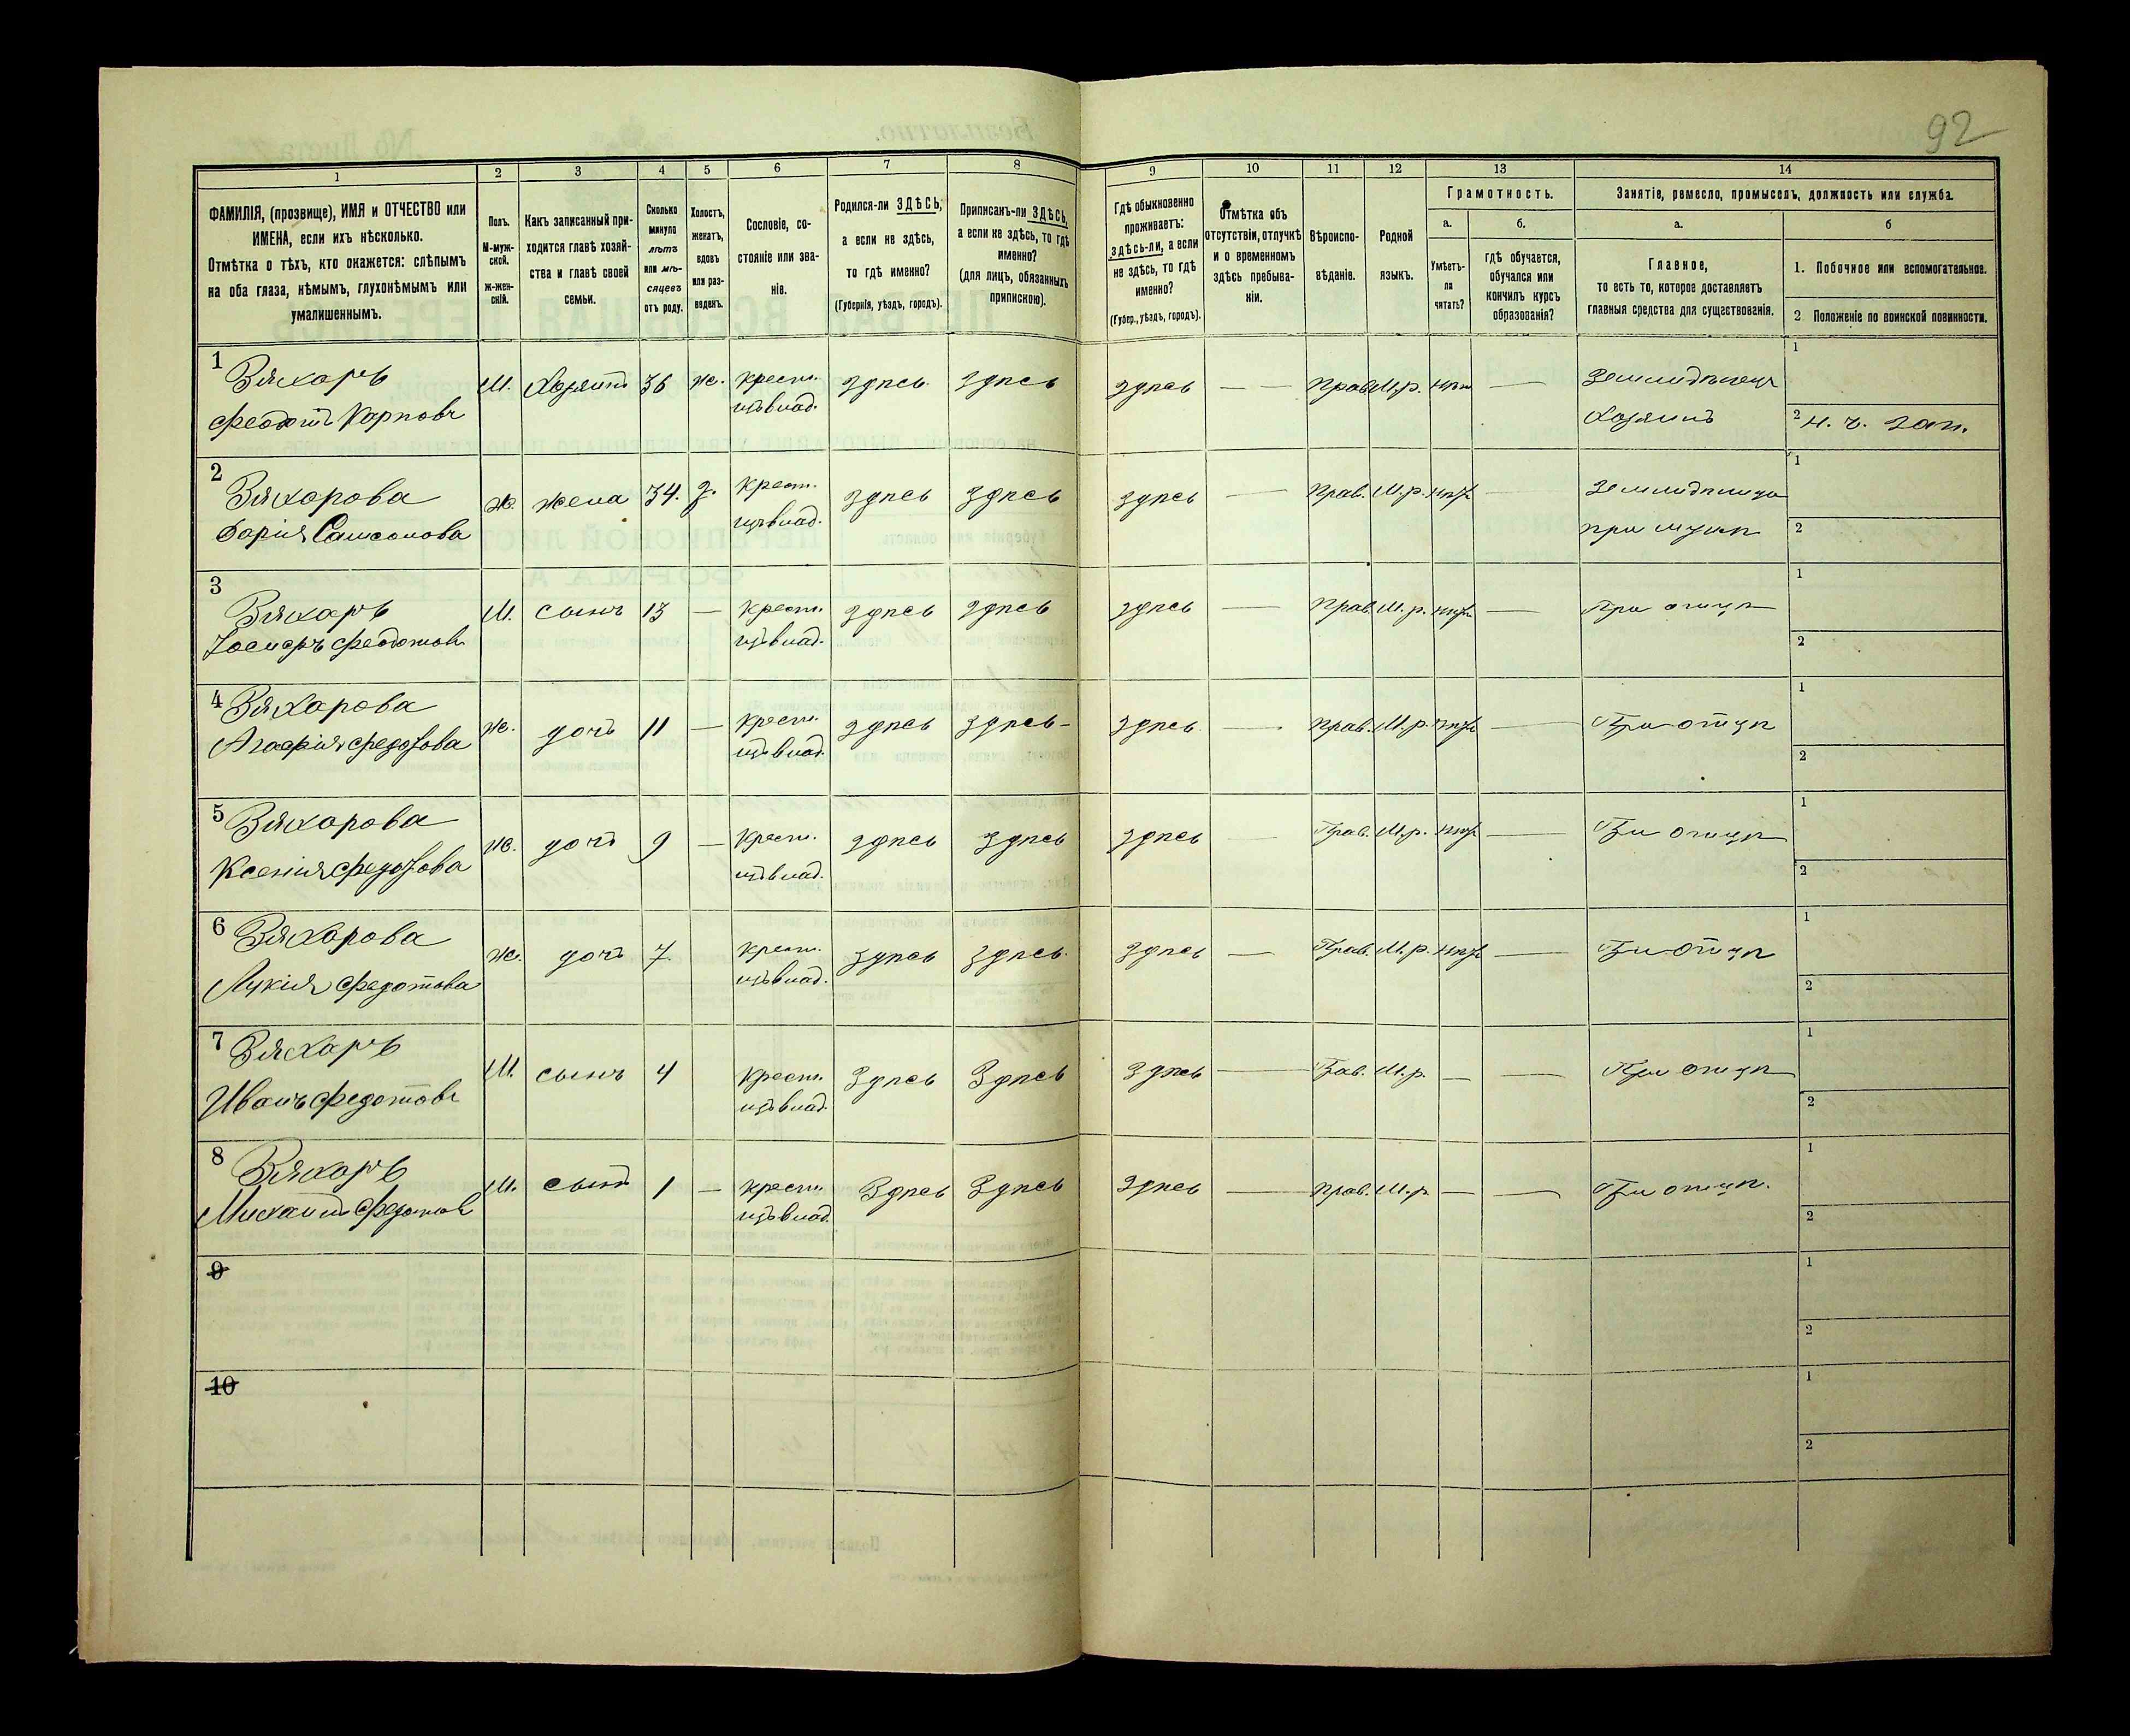 92
1
2
3
4
5
6
7
8
9
10
11
12
13
14
ФАМИЛІЯ, (прозвище), ИМЯ и ОТЧЕСТВО или
ИМЕНА, если ихъ нѣсколько.
Отмѣтка о тѣхъ, кто окажется: слѣпымъ
на оба глаза, нѣмымъ, глухонѣмымъ или
умалишеннымъ.
Полъ.
М-муж-
ской.
Ж-жен-
скій.
Какъ записанный при-
ходится главѣ хозяй-
ства и главѣ своей
семьи.
Сколько
минуло
лѣтъ
или мѣ-
сяцевъ
отъ роду.
Холостъ,
женатъ,
вдовъ
или раз-
веденъ.
Сословіе, со-
стояніе или зва-
ніе.
Родился-ли ЗДѢСЬ,
а если не здѣсь,
то гдѣ именно?
(Губернія, уѣздъ, городъ).
Приписанъ-ли ЗДѢСЬ,
а если не здѣсь, то гдѣ
именно?
(для лицъ, обязанныхъ
припискою).
Гдѣ обыкновенно
проживаетъ:
здѣсь-ли, а если
не здѣсь, то гдѣ
именно?
(Губер., уѣздъ, городъ).
Отмѣтка объ
отсутствіи, отлучкѣ
и о временномъ
здѣсь пребыва-
ніи.
Вѣроиспо-
вѣданіе.
Родной
языкъ.
Грамотность.
а.
Умѣетъ-
ли
читать?
б.
гдѣ обучается,
обучался или
кончилъ курсъ
образованія?
Занятіе, ремесло, промыселъ, должность или служба.
а.
Главное,
то есть то, которое доставляетъ
главныя средства для существованія.
б
1. Побочное или вспомогательное.
2 Положеніе по воинской повинности.
1
Вяхарь
Феодотъ Карповъ
М. Хозяинъ 36 ж. крест. здѣсь здѣсь здѣсь — — Прав. М.р. —
Хозяинъ
1
2 н. ч. зап.
2
Вяхорова
Дарія Самсонова
ж. жена 34. з. крест. здѣсь здѣсь здѣсь — Прав. М.р. —
при мужѣ
1
2
3
Вяхарь
Іосифъ Феодотовъ
М. сынъ 13 — крест. здѣсь здѣсь здѣсь — Прав. М.р. — При отцѣ
1
2
4
Вяхорова
Агафія Федотова
ж. дочь 11 — крест. здѣсь здѣсь здѣсь — Прав. М.р. — При отцѣ
1
2
5
Вяхорова
Ксенія Федотова
ж. дочь 9 — крест. здѣсь здѣсь здѣсь — Прав. М.р. — При отцѣ
1
2
6
Вяхорова
Лукія Федотова
ж. дочь 7 крест. здѣсь здѣсь здѣсь — Прав. М.р. — При отцѣ
1
2
7
Вяхарь
Иванъ Федотовъ
М. сынъ 4 крест. здѣсь здѣсь здѣсь — Прав. М.р. — — При отцѣ
1
2
8
Вяхарь
Михаилъ Федотовъ
М. сынъ 1 — крест. здѣсь здѣсь здѣсь — Прав. М.р — — При отцѣ.
1
2
9
1
2
10
1
2